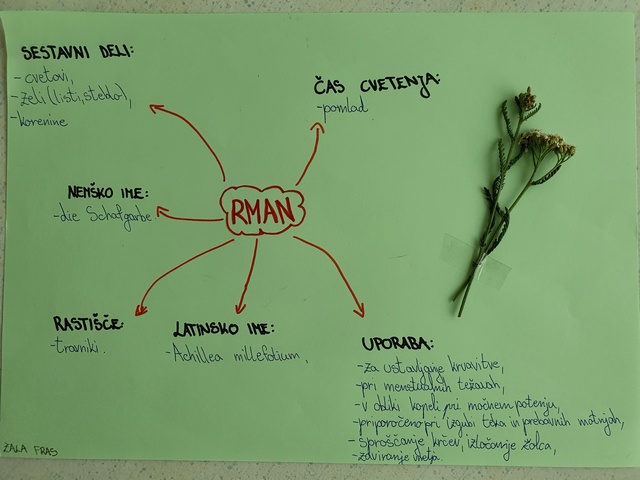 SESTAVNI DELI:
- cvetovi,
- zeli (listi, steblo),
- korenine
ČAS CVETENJA:
- pomlad
NEMŠKO IME:
- die Schafgarbe
RMAN
RASTIŠČE:
- travniki.
LATINSKO IME:
- Achillea millefolium,
UPORABA:
- za ustavljanje krvavitve,
- pri menstrualnih težavah,
- v obliki kopeli pri močnem potenju,
- priporočeno pri izgubi teka in prebavnih motnjah,
- sproščanje krčev, izločanje žolča,
- zdravljenje
ŽALA FRAS